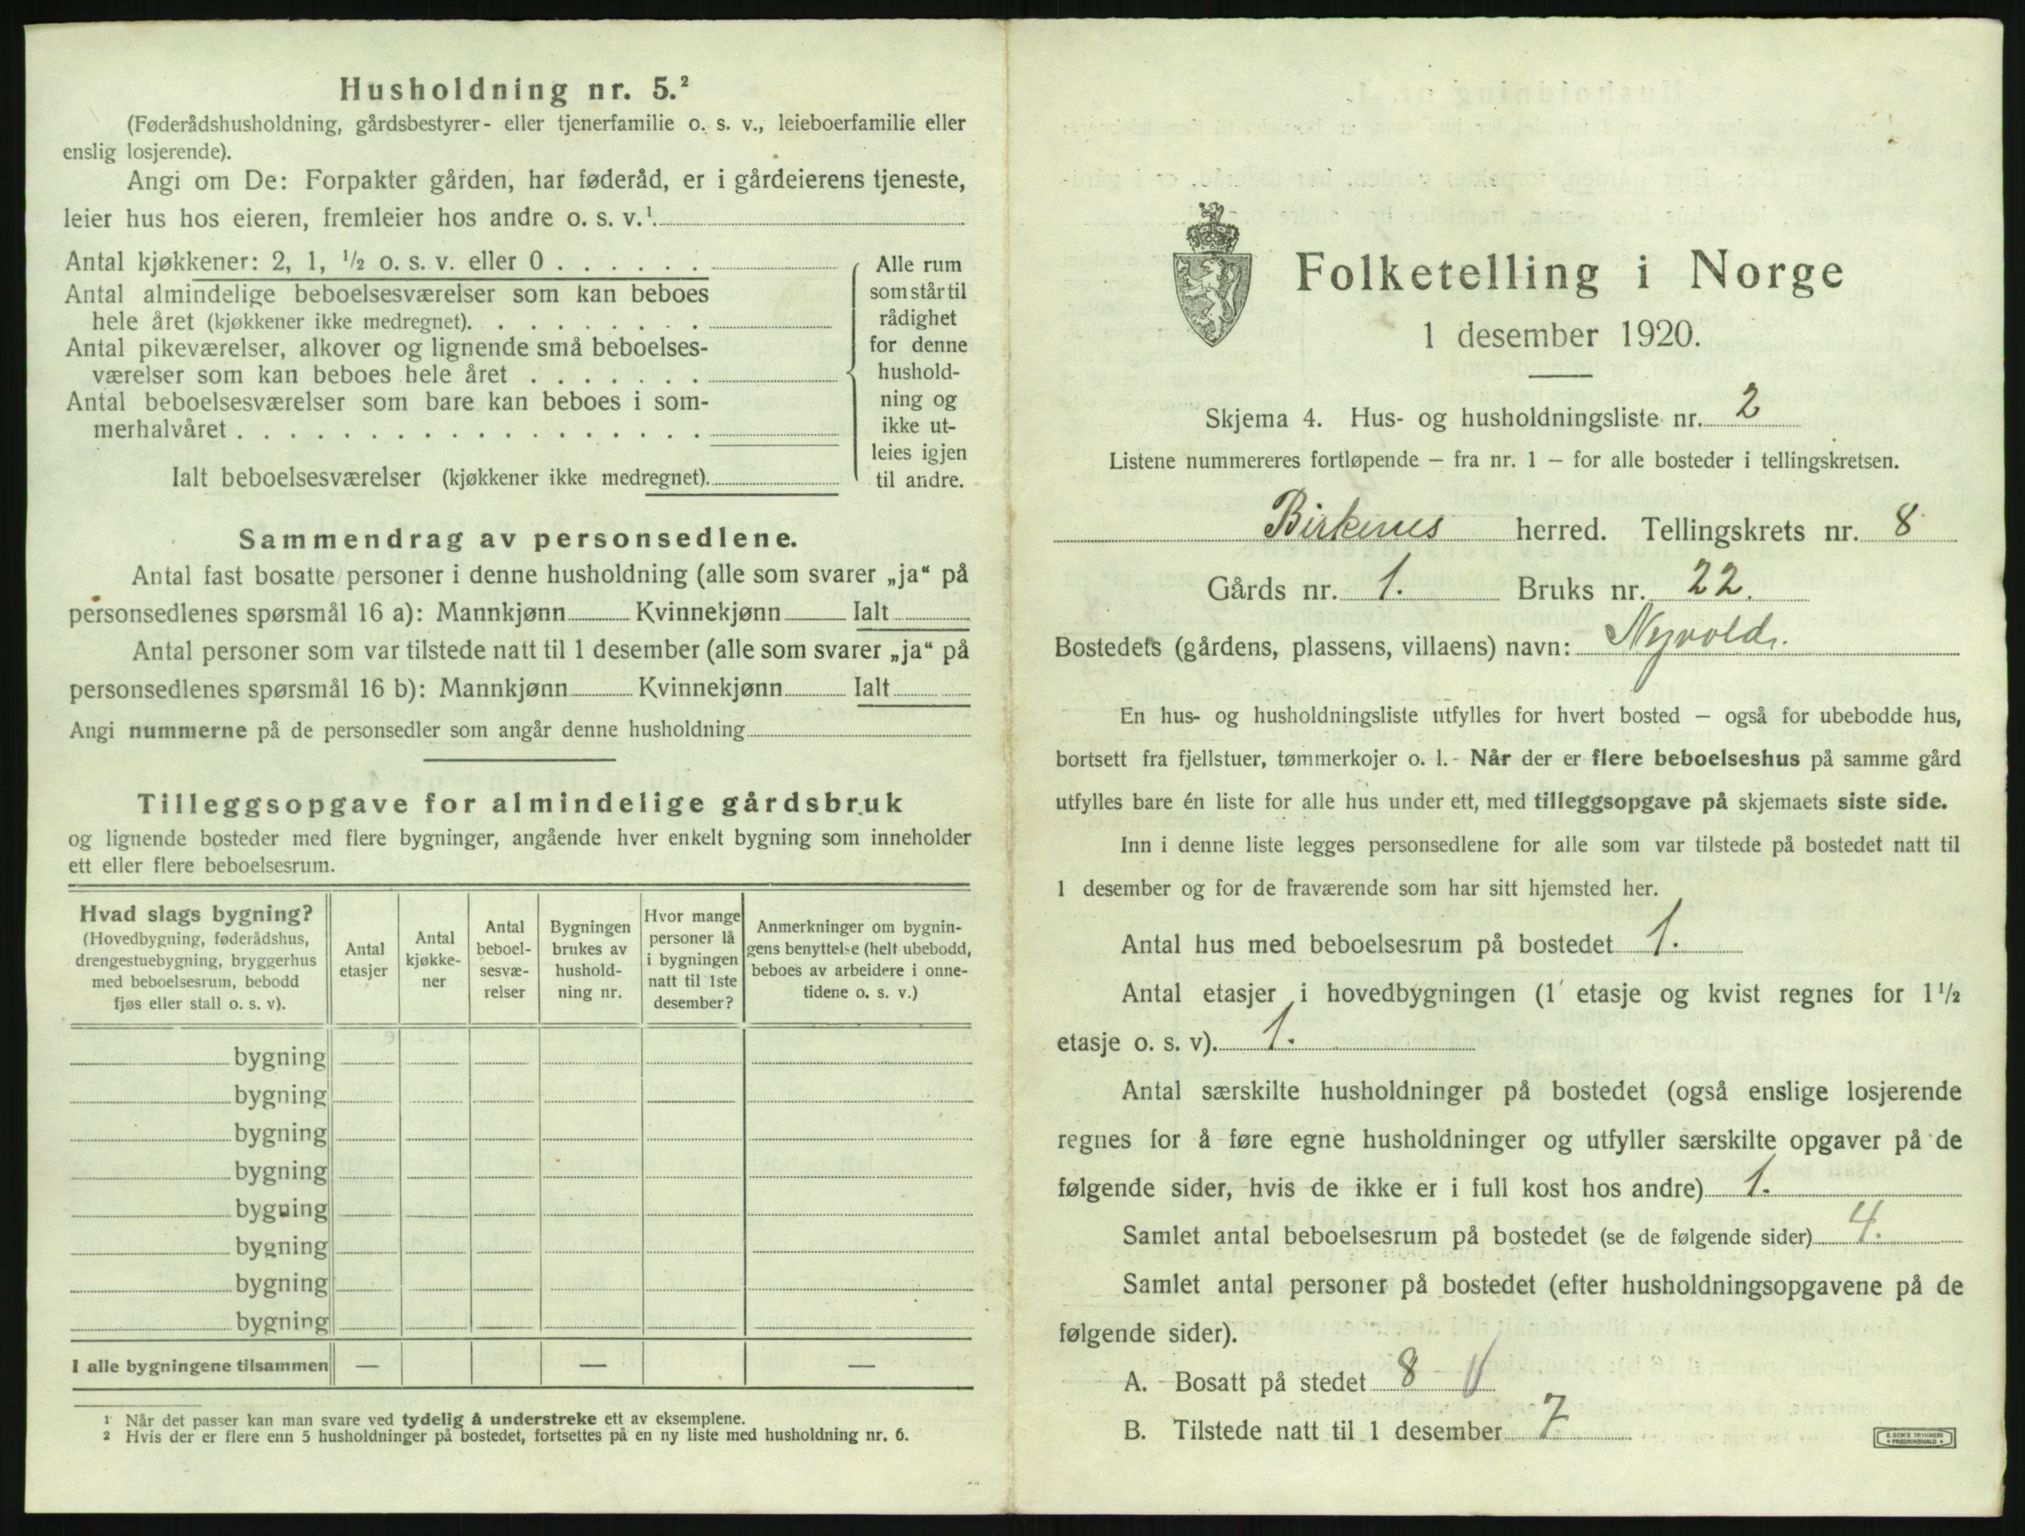 Husholdning nr. 5.²
(Føderådshusholdning, gårdsbestyrer- eller tjenerfamilie o. s. v., leieboerfamilie eller
enslig losjerende).
Angi om De: Forpakter gården, har føderåd, er i gårdeierens tjeneste,
leier hus hos eieren, fremleier hos andre o. s. v.¹
Antal kjøkkener: 2, 1, ½ o. s. v. eller 0 . . . . . .
Antal almindelige beboelsesværelser som kan beboes
hele året (kjøkkener ikke medregnet). . . . . . . . .
Antal pikeværelser, alkover og lignende små beboelses-
værelser som kan beboes hele året . . . . . . .
Antal beboelsesværelser som bare kan beboes i som-
merhalvåret . . . . . . . . . . . . . . . . . .
Ialt beboelsesværelser (kjøkkener ikke medregnet).
Alle rum
som står til
rådighet
for denne
hushold-
ning og
ikke ut-
leies igjen
til andre.
Sammendrag av personsedlene.
Antal fast bosatte personer i denne husholdning (alle som svarer „ja“ på
personsedlenes spørsmål 16 a): Mannkjønn Kvinnekjønn Ialt
Antal personer som var tilstede natt til 1 desember (alle som svarer „ja“ på
personsedlenes spørsmål 16 b): Mannkjønn Kvinnekjønn Ialt
Angi nummerne på de personsedler som angår denne husholdning
Tilleggsopgave for almindelige gårdsbruk
og lignende bosteder med flere bygninger, angående hver enkelt bygning som inneholder
ett eller flere beboelsesrum.
Hvad slags bygning?
(Hovedbygning, føderådshus,
drengestuebygning, bryggerhus
med beboelsesrum, bebodd
fjøs eller stall o. s. v).
Antal
etasjer
Antal
kjøkke-
ner
Antal
beboel-
sesvæ-
relser
Bygningen
brukes av
hushold-
ning nr.
Hvor mange
personer lå
i bygningen
natt til 1ste
desember?
Anmerkninger om bygnin-
gens benyttelse (helt ubebodd,
beboes av arbeidere i onne-
tidene o. s. v.)
bygning
bygning
bygning
bygning
bygning
bygning
bygning
bygning
I alle bygningene tilsammen — — —
¹ Når det passer kan man svare ved tydelig å understreke ett av eksemplene.
² Hvis der er flere enn 5 husholdninger på bostedet, fortsettes på en ny liste med husholdning nr. 6.
Folketelling i Norge
1 desember 1920.
Skjema 4. Hus- og husholdningsliste nr. 2
Listene nummereres fortløpende — fra nr. 1 — for alle bosteder i tellingskretsen.
Birkenes herred. Tellingskrets nr. 8
Gårds nr. 1. Bruks nr. 22.
Bostedets (gårdens, plassens, villaens) navn: Nyvold.
En hus- og husholdningsliste utfylles for hvert bosted — også for ubebodde hus,
bortsett fra fjellstuer, tømmerkojer o. l. - Når der er flere beboelseshus på samme gård
utfylles bare én liste for alle hus under ett, med tilleggsopgave på skjemaets siste side.
Inn i denne liste legges personsedlene for alle som var tilstede på bostedet natt til
1 desember og for de fraværende som har sitt hjemsted her.
Antal hus med beboelsesrum på bostedet 1.
Antal etasjer i hovedbygningen (1 etasje og kvist regnes for 1½
etasje o. s. v). 1.
Antal særskilte husholdninger på bostedet (også enslige losjerende
regnes for å føre egne husholdninger og utfyller særskilte opgaver på de
følgende sider, hvis de ikke er i full kost hos andre) 1.
Samlet antal beboelsesrum på bostedet (se de følgende sider) 4.
Samlet antal personer på bostedet (efter husholdningsopgavene på de
følgende sider).
A. Bosatt på stedet 8
B. Tilstede natt til 1 desember 7